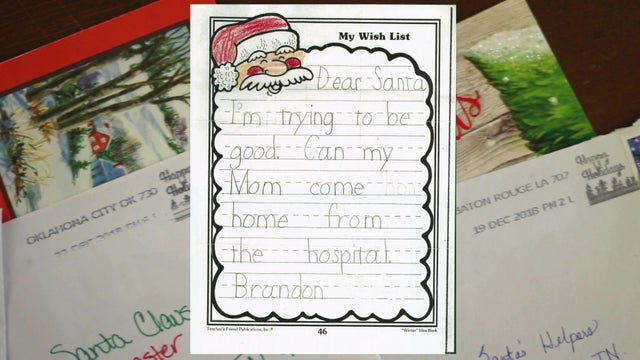 My Wish List
Dear Santa
I'm trying to be
good. Can my
Mom come hom
home from
the hospital.
Brandon
Teacher's Friend Publications, Inc.®
46
"Winter" Idea Book
OKLAHOMA CITY OK 730
Happy
Holidays
Santa Claus
BATON ROUGE LA 707
19 DEC 2018 PM 2 L
Happy
Holidays
Santa's Helpers
TN